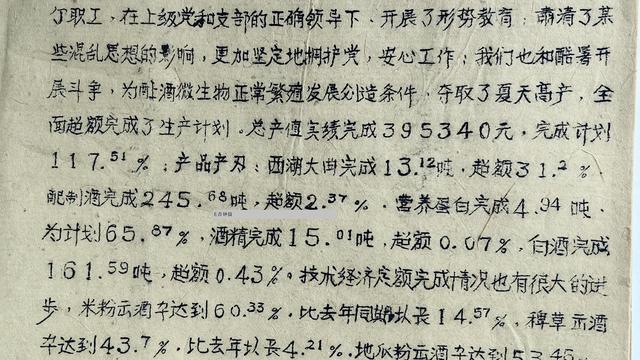 了职工，在上级党和支部的正确领导下、开展了形势教育；肃清了某
些混乱思想的影响，更加坚定地拥护党，安心工作；我们也和酷暑开
展斗争，为酢酒微生物正常繁殖发展创造条件，夺取了夏天高产，全
面超额完成了生产计划。总产值实绩完成395340元，完成计划
117.51%；产品产另：西湖大曲完成13.12吨，超额31.2%．
配制酒完成245.68吨，超额2.37%．营养蛋白完成4.94吨．
为计划65.87%，酒精完成15.01吨，超额0.07%，白酒完成
161.59吨，超额0.43%。技术经济定额完成情况也有很大的进
步，米粉云酒卆达到60.33%，比去年同期以長14.57%，稗草云酒
卆达到43.7%，比去年以長4.21%，地瓜粉云酒卆达到53.45%